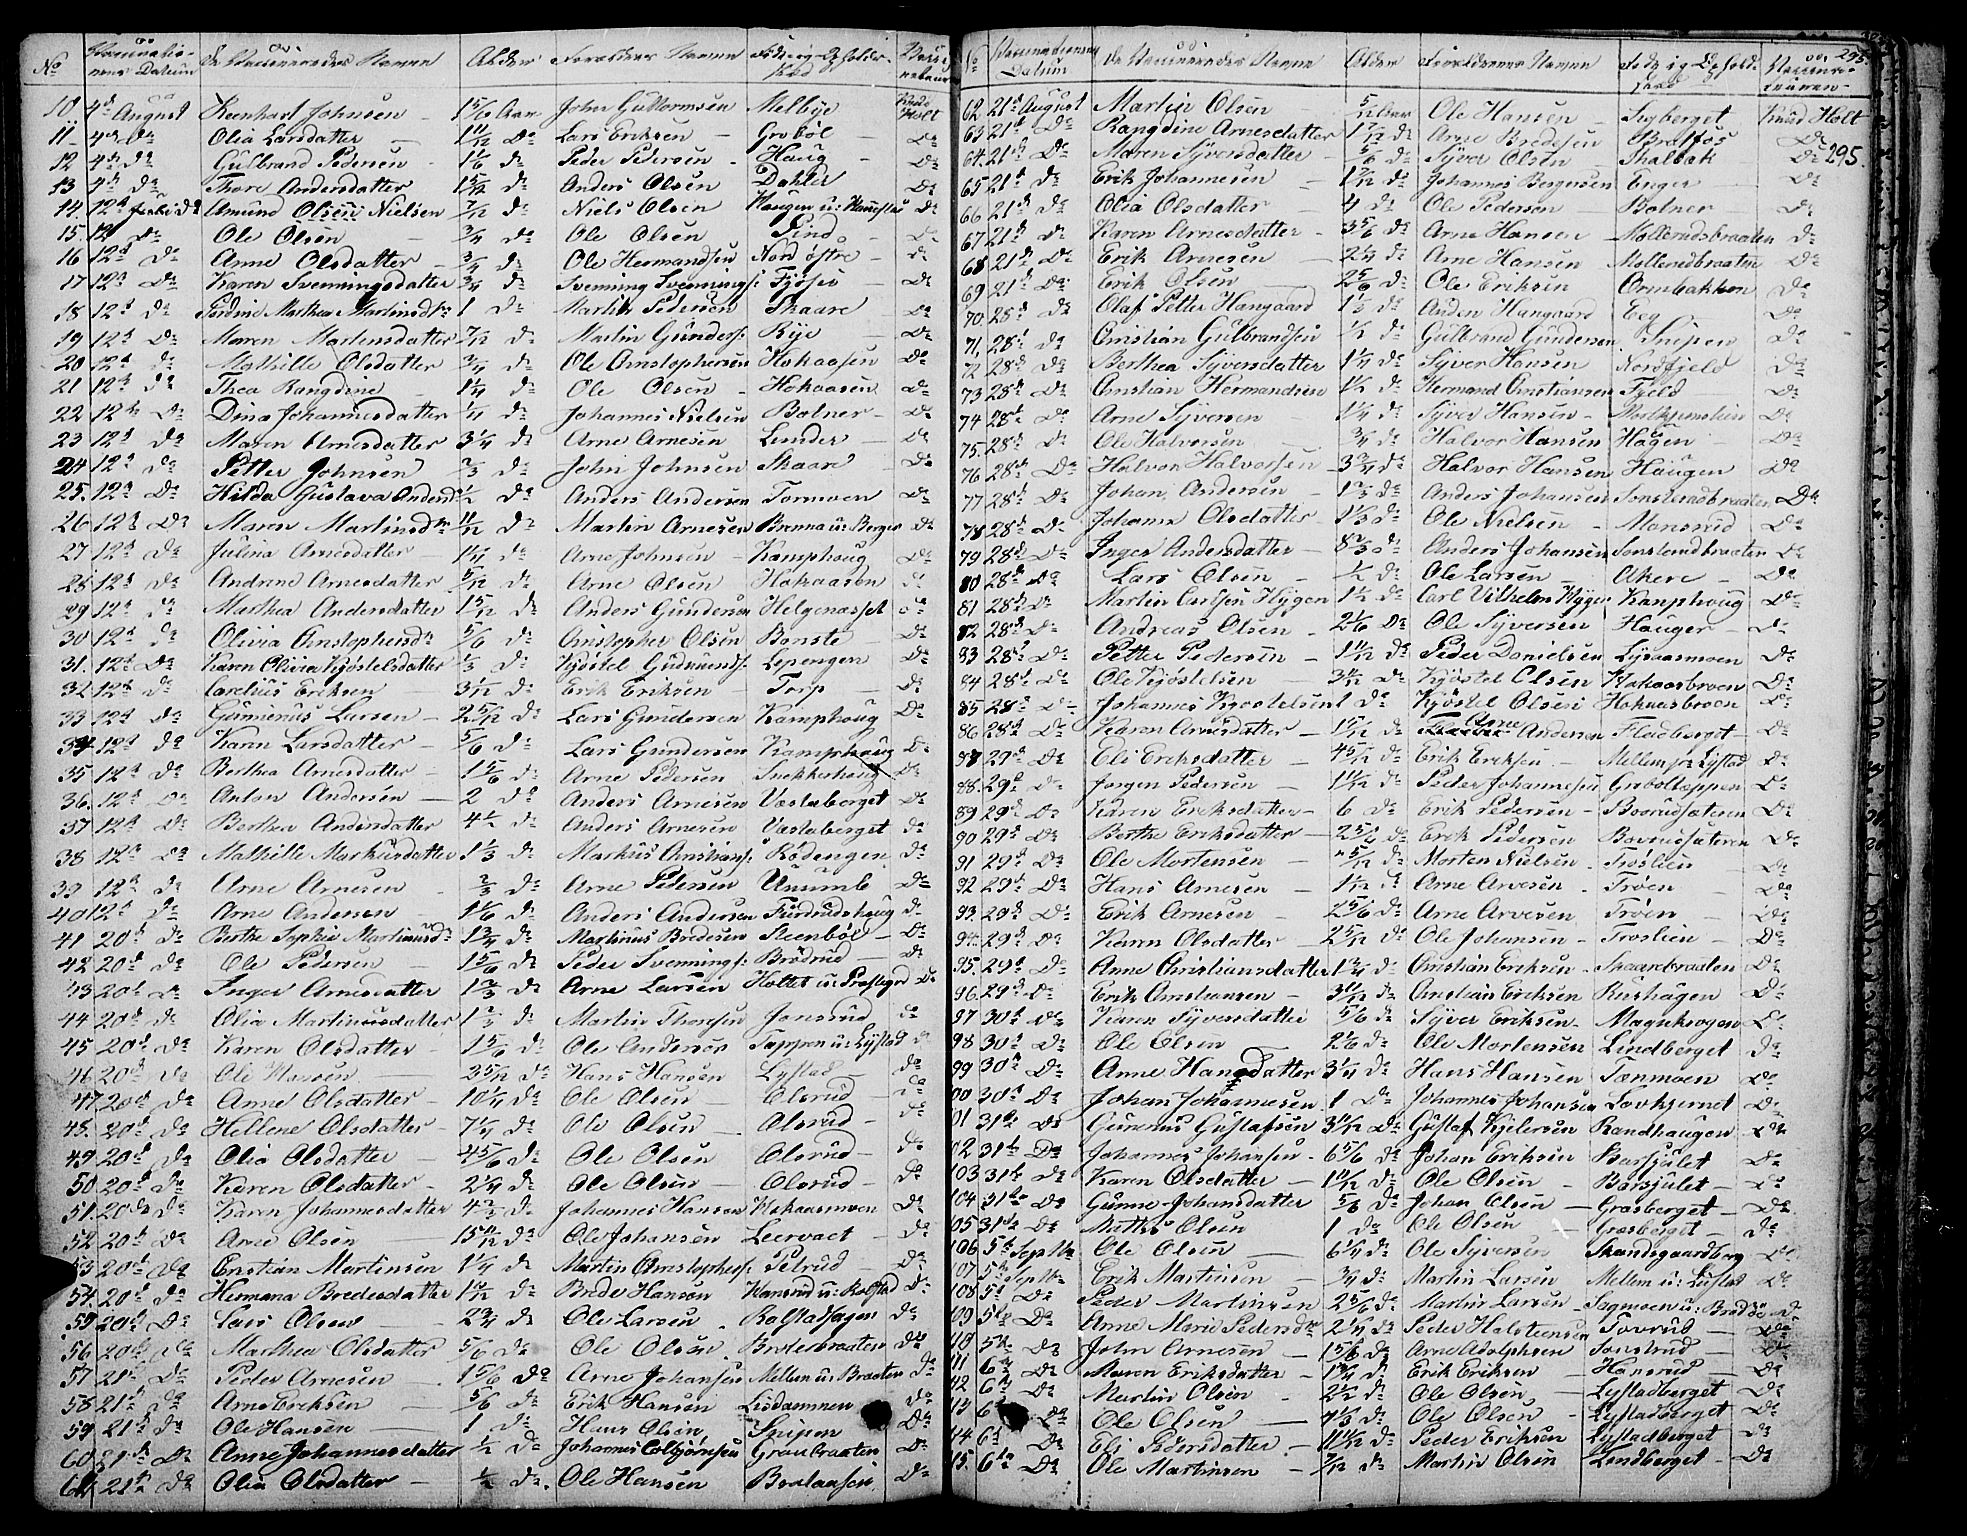 No Vaccinationens Datum De Vaccineredes Navne Alder Forældrenes Navne Føde og Opholds-Sted
10 4de August Reenhart Johnsen 1 5/6 Aar John Guttormsen Melbye Knud Holt
11 4de Do Olia Larsdatter 11/12 Do Lars Eriksen Grobøl Do
12 4de Do Gulbrand Pedersen 1 1/6 Do Peder Pedersen Haug Do
13 4de Do Thore Andersdatter 1 5/12 Do Anders Olsen Dahler Do
14 12te Do Amund Nielsen 7/12 Do Niels Olsen Haugen Do
15 12 Do Ole Olsen 3/4 Do Ole Olsen Lind Do
16 12te Do Anne Olsdatter 3/4 Do Ole Hermandsen Nord østre Do
17 12te Do Karen Svenningsdatter 3/4 Do Svenning Svennings: Do
18 12te Do Marthea Martinsdtr 1 Do Martin Pedersen Skaare Do
19 12te Do Maren Martensdatter 7/12 Do Martin Gunders: Rye Do
20 12te Do Mathille Olsdatter 3/4 Do Ole Christophersen Hokaasen Do
21 12te Do Thea Rangdine 1 1/4 Do Ole Olsen Hokaasen Do
22 12te Do Dina Johannesdatter Do Johannes Nielsen Bolner Do
23 12te Do Maren Arnesdatter 3 1/4 Do Arne Arnesen Lunder Do
24 12te Do Petter Johnsen 2/3 Do John Johnsen Skaare Do
25 12te Do Hilda Gustava Andersd: 1/2 Do Anders Andersen Tormoen Do
26 12te Do Maren Martinsdtr 11/12 Do Martin Arnesen Brenna u: Berger Do
27 12te Do Julina Arnesdatter 1 1/4 Do Arne Johnsen Kamphoug Do
28 12te Do Andrine Arnesdatter 5/12 Do Arne Olsen Hokaasen Do
29 12te Do Marthea Andersdatter 1 5/12 Do Anders Gundersen Helgenasset Do
30 12te Do Olivia Christophersdtr 5/6 Do Christopher Olsen Bonste Do
31 12te Do Karen Olivia Kjøstelsdatter 2/3 Do Kjøstel Gudmunds: Lepengen Do
32 12te Do Carelius Eriksen 3 1/12 Do Erik Eriksen Torp Do
33 12te Do Gunnerius Larsen 2 5/12 Do Lars Gundersen Kamphoug Do
34 12te Do Karen Larsdatter 5/6 Do Lars Gundersen Kamphoug Do
35 12te Do Berthea Arnesdatter 1 5/6 Do Arne Pedersen Snekkehoug Do
36 12te Do Anton Andersen 2 Do Anders Arnesen Vestaberget Do
37 12te Do Berthea Andersdatter 4 1/2 Do Anders Arnesen Vestaberget Do
38 12te Do Mathille Markusdatter 1 1/3 Do Markus Christians: Rødengen Do
39 12te Do Arne Arnesen 2/3 Do Arne Pedersen Do
40 12te Do Arne Andersen 1 1/6 Do Anders Andersen Furdrudshoug Do
41 20de Do Berthe Sophie Martinusdtr 1 3/4 Do Martinus Bredesen Steenbøl Do
42 20de Do Ole Pedersen 1 5/6 Do Peder Svennings: Brødrud Do
43 20de Do Inger Arnesdatter 1 2/3 Do Arne Larsen Holtet u: Do
44 20de Do Olia Martinusdatter 1 2/3 Do Martin Thoresen Jonsrud Do
45 20de Do Karen Olsdatter 1 5/6 Do Ole Andersen Tappen u: Lystad Do
46 20de Do Ole Hansen 2 5/12 Do Hans Hansen Lystad Do
47 20de Do Anne Olsdatter 10 1/4 Do Ole Olsen Olsrud Do
48 20de Do Hellene Olsdatter 7 1/4 Do Ole Olsen Olsrud Do
49 20de Do Olia Olsdatter 4 5/6 Do Ole Olsen Olsrud Do
50 20de Do Karen Olsdatter 2 1/4 Do Ole Olsen Olsrud Do
51 20de Do Karen Johannesdatter Do Johannes Hansen Hokaasmoen Do
52 20de Do Arne Olsen 15 11/12 Do Ole Johansen Leervaet Do
53 20de Do Cristian Martinsen 1 1/4 Do Martin Christophers: Pelrud Do
54 20de Do Hermana Bredesdatter Do Brede Hansen Hansrud u: Rolstad Do
55 20de Do Lars Olsen 2 3/4 Do Ole Larsen Rolstadhagen Do
56 20de Do Marthea Olsdatter 5/6 Do Ole Olsen Do
57 21de Do Peder Arnesen 1 5/6 Do Arne Johansen Mellem u: Braaten Do
58 21de Do Arne Eriksen 5/6 Do Erik Hansen Lisdammen Do
59 21de Do Ole Hansen 1 Do Hans Olsen Snipen Do
60 21de Do Anne Johannesdatter 1/2 Do Johannes Colbjørnsen Graubraaten Do
61 21de Do Olia Olsdatter 1/2 Do Ole Hansen Do
295.
No Vaccinationens Datum De Vaccineredes Navne Alder Forældrenes Navne Føde og Opholds Sted
62 21de August Martin Olsen 5/12 Aar Ole Hansen Sigberget Knud Holt
63 21de Do Rangdine Arnesdatter 1 7/12 Do Arne Bredesen Bratfos Do
295.
64 21de Do Maren Syversdatter 5/6 Do Syver Olsen Skalbak Do
65 21de Do Erik Johannesen 1 7/12 Do Johannes Bergersen Enger Do
66 21de Do Olia Olsdatter 4 Do Ole Pedersen Bolner Do
67 21de Do Karen Arnesdatter 3 5/6 Do Arne Hansen Mollerudsbraaten Do
68 21de Do Erik Arnesen 2 1/4 Do Arne Hansen Mollerudbraaten Do
69 21de Do Erik Olsen 2 5/6 Do Ole Eriksen Ormbakken Do
70 28de Do Olaf Petter Hangaard 1 1/2 Do Anden Hangaard Eeg Do
71 28de Do Christian Gulbrandsen 1/2 Do Gulbrand Gundersen Snipen Do
72 28de Do Berthea Syversdatter 1 1/4 Do Syver Hansen Nordfjeld Do
73 28de Do Christian Hermandsen 1/2 Do Hermand Christiansen Fjeld Do
74 28de Do Arne Syversen 1 1/4 Do Syver Hansen Do
75 28de Do Ole Halvorsen 3/4 Do Halvor Hansen Hagen Do
76 28de Do Halvor Halvorsen 3 3/4 Do Halvor Hansen Haugen Do
77 28de Do Johan Andersen 1 2/3 Do Anders Johansen Sonsterudbraaten Do
78 28de Do Johanne Olsdatter 1 1/3 Do Ole Nielsen Monsrud Do
79 28de Do Inger Andersdatter 8 2/3 Do Anders Johansen Sonsterudbraaten Do
80 28de Do Lars Olsen 1/2 Do Ole Larsen Akere Do
81 28de Do Martin Carlsen Hygen 1 1/2 Do Carl Vilhelm Hygen Kamphoug Do
82 28de Do Andreas Olsen 2 1/6 Do Ole Syversen Hauger Do
83 28de Do Petter Pedersen 1 11/12 Do Peder Danielsen Lysaasmoen Do
84 28de Do Ole Kjøstelsen Do Kjøstel Olsen Hokaasbroen Do
85 28de Do Johannes Kjøstelsen 1 Do Kjøstel Olsen Hokaasbroen Do
86 28de Do Karen Arnesdatter 1 5/12 Do Arne Andersen Fladberget Do
87 29de Do Eli Eriksdatter 4 5/12 Do Erik Eriksen Mellem Lystad Do
88 29de Do Jørgen Pedersen 1 11/12 Do Peder Johannesen Grøboltappen Do
89 29de Do Karen Eriksdatter 6 Do Erik Pedersen Boorudsateren Do
90 29de Do Berthe Eriksdatter Do Erik Pedersen Boorudsateren Do
91 29de Do Ole Mortensen 5/12 Do Morten Nielsen Troslien Do
92 29de Do Hans Arnesen 1 1/12 Do Arne Arvesen Trøen Do
93 29de Do Erik Arnesen 2 5/6 Do Arne Arvesen Trøen Do
94 29de Do Karen Olsdatter 2 5/12 Do Ole Johansen Troslien Do
95 29de Do Anne Christiansdatter 1 3/4 Do Christian Eriksen Skaarebraaten Do
96 29de Do Erik Christiansen 3 11/12 Do Christian Eriksen Rushagen Do
97 30te Do Karen Syversdatter 5/6 Do Syver Eriksen Magnkrogen Do
98 30te Do Ole Olsen 2 1/6 Do Ole Mortensen Lindberget Do
99 30te Do Anne Hansdatter 3 1/4 Do Hans Hansen Tønmoen Do
00 30te Do Johan Johannesen 1 Do Johannes Johansen Tovkjernet Do
01 31te Do Gunerus Gustafsen 3 11/12 Do Gustaf Kjelersen Randhaugen Do
02 31te Do Johannes Johansen 6 5/6 Do Johan Eriksen Barsjulet Do
103 31te Do Karen Olsdatter 1 11/12 Do Ole Olsen Barsjulet Do
104 31te Do Gunne Johansdatter 5/6 Do Johan Olsen Grasberget Do
105 31te Do Mathis Olsen 1 Do Ole Olsen Grasberget Do
106 5te Septbr Ole Olsen 6 1/4 Do Ole Syversen Skandsgaardsberg Do
107 5te Septbr Erik Martinsen 3/4 Do Martin Larsen Mellem u: Lystad Do
108 5te Do Peder Martinsen 2 5/6 Do Martin Larsen Sagmoen u: Do
109 5te Do Anne Marie Pedersdtr 2 1/4 Do Peder Halsteensen Tovrud Do
110 5te Do John Arnesen 1 5/6 Do Arne Adolphsen Jonsrud Do
11 6te Do Maren Eriksdatter 1 3/4 Do Erik Eriksen Hansrud Do
12 6te Do Martin Olsen 2 1/2 Do Ole Olsen Lystadberget Do
13 6te Do Ole Olsen 4 1/3 Do Ole Olsen Lystadberget Do
14 6te Do Eli Pedersdatter 11 11/12 Do Peder Eriksen Lystadberget Do
15 6te Do Ole Martinsen 7/12 Do Martin Olsen Lindberget Do